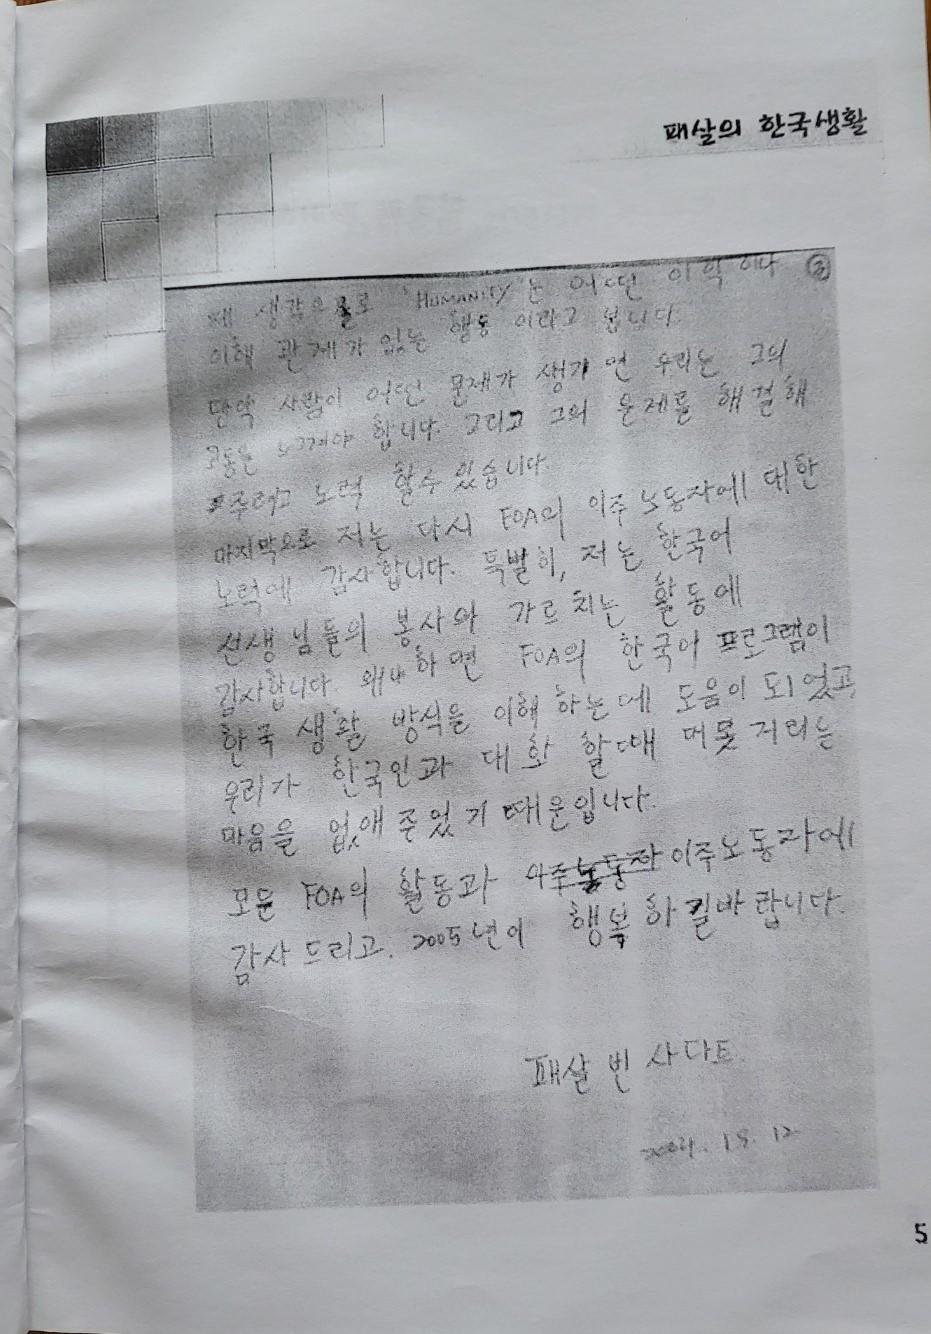 패살의 한국생활
제 생각으로 "HUMANITY"는 어떤 이익이나 ③
이해 관계가 없는 행동 이라고 봅니다.
만약 사람이 어떤 문제가 생기면 우리는 그의
고통을 느껴야 합니다. 그리고 그의 문제를 해결해
주려고 노력 할수 있습니다.
마지막으로 저는 다시 FOA의 이주 노동자에 대한
노력에 감사합니다. 특별히, 저는 한국어
선생님들의 봉사와 가르치는 활동에
감사합니다. 왜냐하면 FOA의 한국어 프로그램이
한국 생활 방식을 이해 하는데 도움이 되었고,
우리가 한국인과 대화 할때 머뭇거리는
마음을 없애 주었기 때문입니다.
모든 FOA의 활동과 이주노동자에
감사 드리고. 2005년이 행복 하길바랍니다.
패살 빈 사다트
2004. 19. 12
5